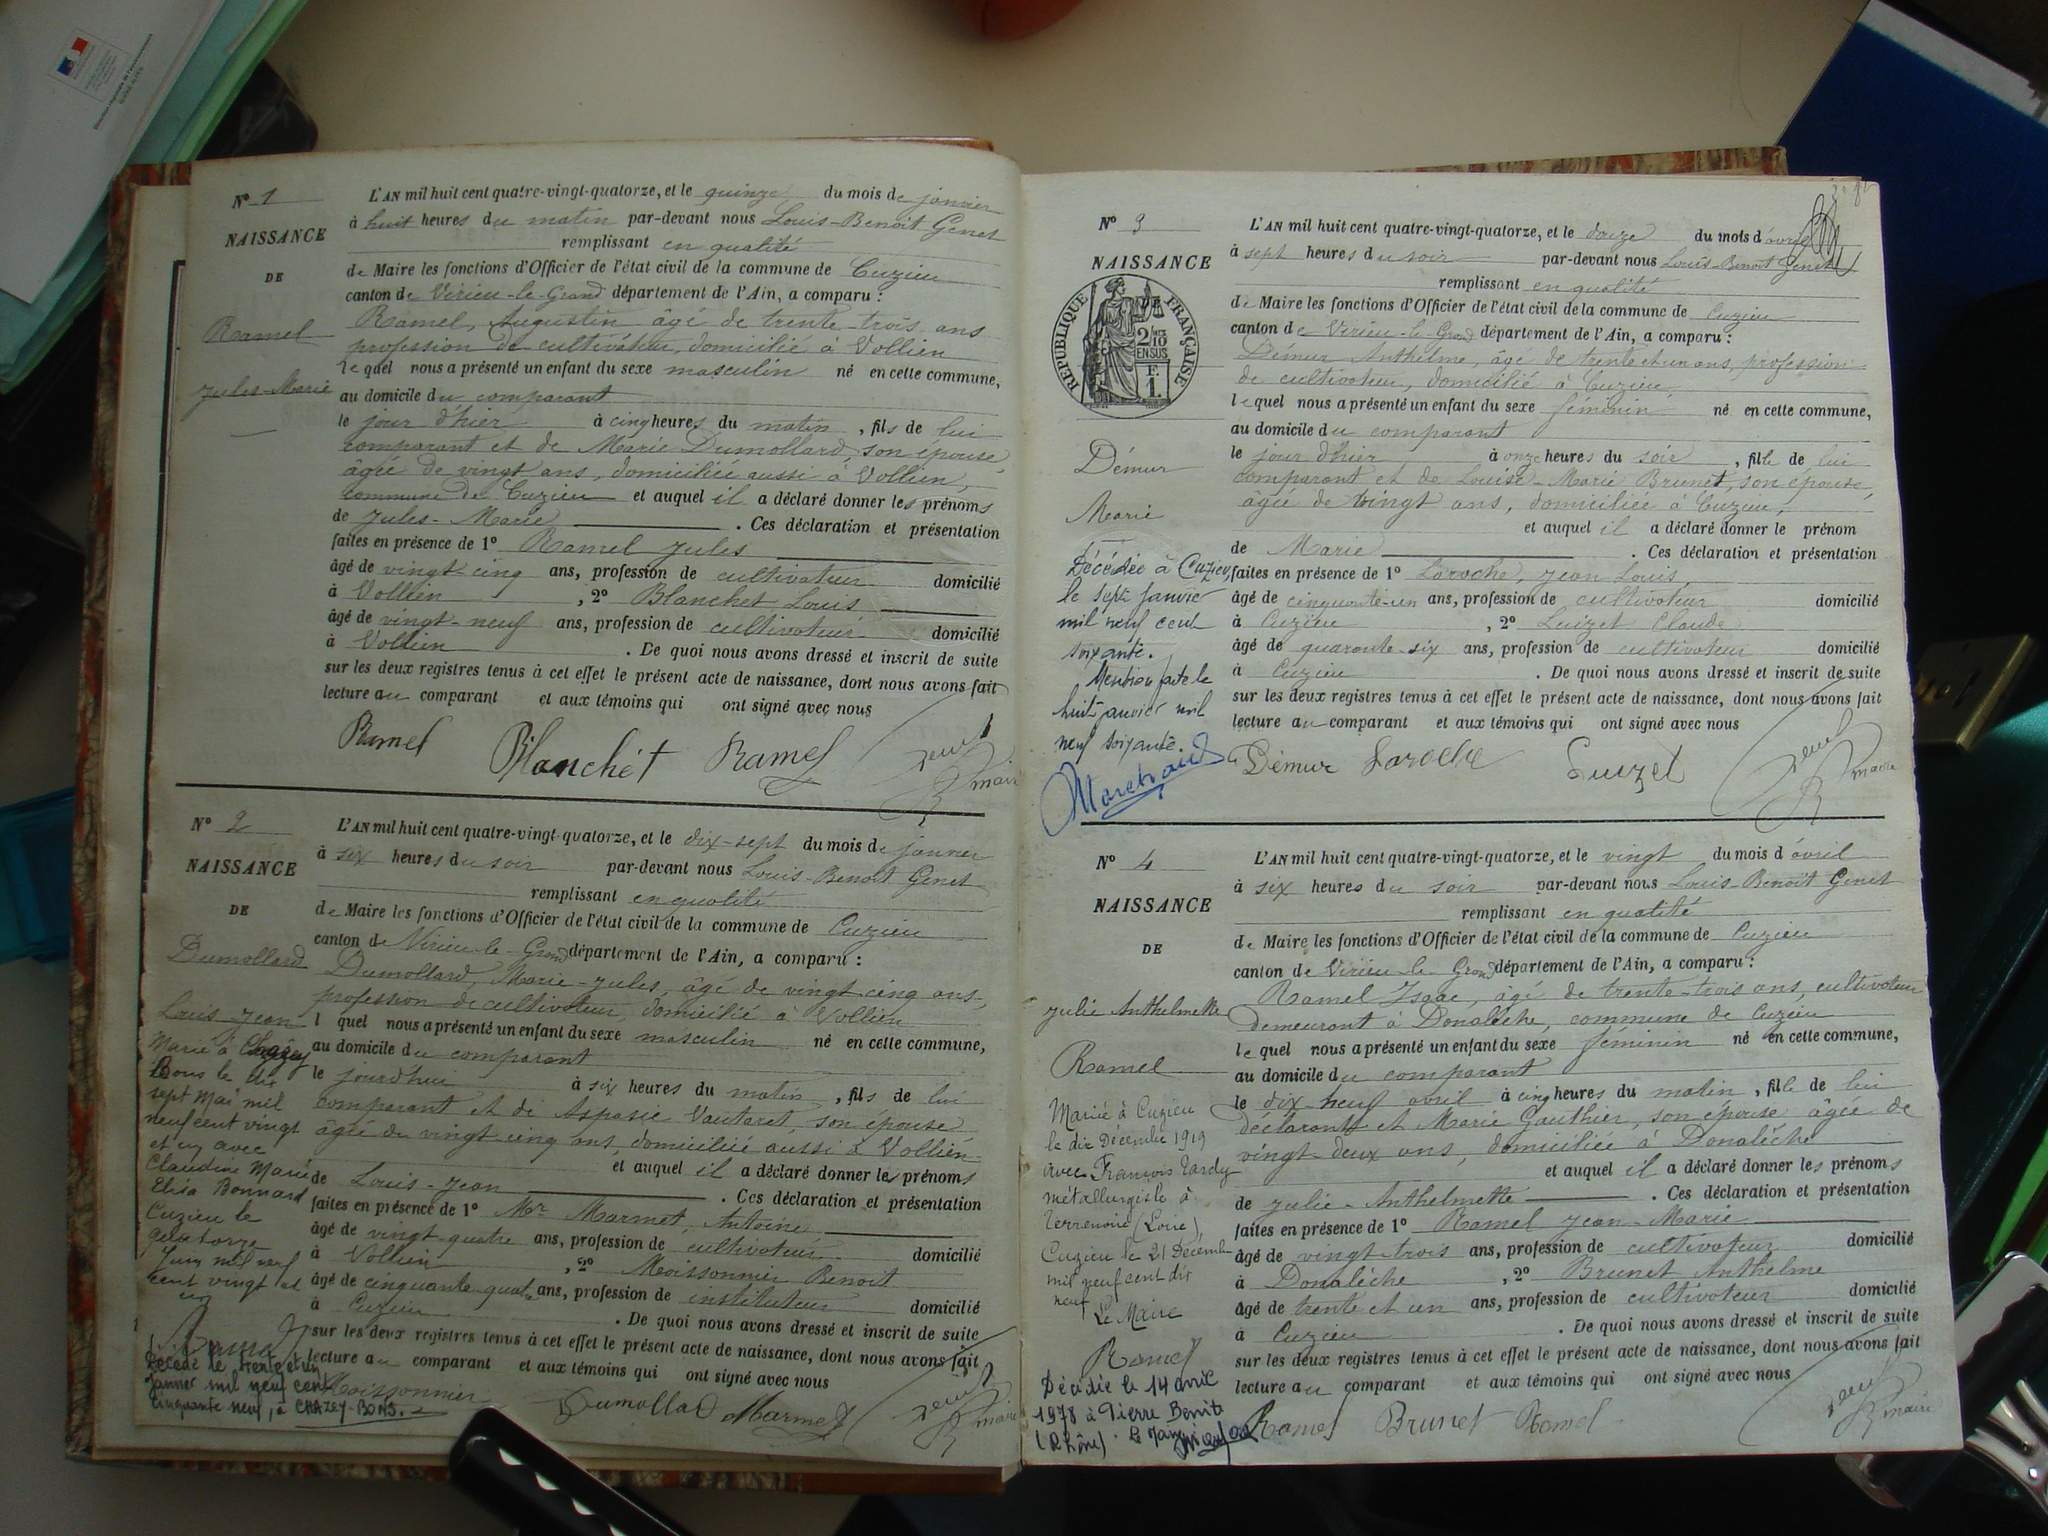 N° 1
NAISSANCE
DE
Ramel
Jules-Marie
L'AN mil huit cent quatre-vingt-quatorze, et le quinze du mois de janvier
à huit heures du matin par-devant nous Louis-Benoit Genet
remplissant en qualité
de Maire les fonctions d'Officier de l'état civil de la commune de Cuzieu
canton de Virieu-le-Grand département de l'Ain, a comparu :
Ramel, Augustin âgé de trente-trois ans
profession de cultivateur, domicilié à Vollien
lequel nous a présenté un enfant du sexe masculin né en cette commune,
au domicile du comparant
le jour d'hier à cinq heures du matin, fils de lui
comparant et de Marie Dumollard, son épouse,
âgée de vingt ans, domiciliée aussi à Vollien,
commune de Cuzieu et auquel il a déclaré donner les prénoms
de Jules-Marie. Ces déclaration et présentation
faites en présence de 1° Ramel Jules
âgé de vingt-cinq ans, profession de cultivateur domicilié
à Vollien, 2° Blanchet Louis
âgé de vingt-neuf ans, profession de cultivateur domicilié
à Vollien. De quoi nous avons dressé et inscrit de suite
sur les deux registres tenus à cet effet le présent acte de naissance, dont nous avons fait
lecture au comparant et aux témoins qui ont signé avec nous
Ramel Blanchet Ramel Genet maire
N° 2
NAISSANCE
DE
Dumollard
Louis-Jean
Marié à Chazey
Bons le dix
sept Mai mil
neuf cent vingt
et un avec
Claudine Marie
Elisa Bonnard
Cuzieu le
Juin mil neuf
cent vingt et
un
Décédé le trente et un
Janvier mil neuf cent
cinquante neuf, à CHAZEY-BONS.
L'AN mil huit cent quatre-vingt-quatorze, et le dix-sept du mois de janvier
à six heures du soir par-devant nous Louis-Benoit Genet
remplissant en qualité
de Maire les fonctions d'Officier de l'état civil de la commune de Cuzieu
canton de Virieu-le-Grand département de l'Ain, a comparu :
Dumollard, Marie-Jules, âgé de vingt cinq ans,
profession de cultivateur, domicilié à Vollien
l quel nous a présenté un enfant du sexe masculin né en cette commune,
au domicile du comparant
le jourdhui à six heures du matin, fils de lui
comparant et de Aspasie Vautaret, son épouse
âgée de vingt cinq ans, domiciliée aussi à Vollien
et auquel il a déclaré donner les prénoms
de Louis-Jean. Ces déclaration et présentation
faites en présence de 1° Mr Marmet, Antoine
âgé de vingt-quatre ans, profession de cultivateur domicilié
à Vollien, 2° Moissonnier Benoit
âgé de cinquante quatre ans, profession de instituteur domicilié
à Cuzieu. De quoi nous avons dressé et inscrit de suite
sur les deux registres tenus à cet effet le présent acte de naissance, dont nous avons fait
lecture au comparant et aux témoins qui ont signé avec nous
Moissonnier Dumollard Marmet Genet maire
N° 3
NAISSANCE
DE
RÉPUBLIQUE FRANÇAISE
2/10
EN SUS
F.
1
Démur
Marie
Décédée à Cuzieu,
le sept janvier
mil neuf cent
soixante.
Mention faite le
huit janvier mil
neuf soixante.
L'AN mil huit cent quatre-vingt-quatorze, et le douze du mois d'avril
à sept heures du soir par-devant nous Louis-Benoit Genet
remplissant en qualité
de Maire les fonctions d'Officier de l'état civil de la commune de Cuzieu
canton de Virieu-le-Grand département de l'Ain, a comparu :
Démur Anthelme, âgé de trente et un ans, profession
de cultivateur, domicilié à Cuzieu
lequel nous a présenté un enfant du sexe féminin né en cette commune,
au domicile du comparant
le jour d'hier à onze heures du soir, fille de lui
comparant et de Louise-Marie Brunet, son épouse,
âgée de vingt ans, domiciliée à Cuzieu,
et auquel il a déclaré donner le prénom
de Marie. Ces déclaration et présentation
faites en présence de 1° Laroche, Jean Louis,
âgé de cinquante-un ans, profession de cultivateur domicilié
à Cuzieu, 2° Luizet Claude
âgé de quarante-six ans, profession de cultivateur domicilié
à Cuzieu. De quoi nous avons dressé et inscrit de suite
sur les deux registres tenus à cet effet le présent acte de naissance, dont nous avons fait
lecture au comparant et aux témoins qui ont signé avec nous
Démur Laroche Luizet Genet maire
N° 4
NAISSANCE
DE
Julie Anthelmette
Ramel
Marié à Cuzieu
le dix Décembre 1919
avec François Tardy
métallurgiste à
Terrenoire (Loire)
Cuzieu le 21 Décembre
mil neuf cent dix
neuf
Le Maire
Ramel
Décédée le 14 avril
1978 à Pierre Bénite
(Rhône).
L'AN mil huit cent quatre-vingt-quatorze, et le vingt du mois d'avril
à six heures du soir par-devant nous Louis-Benoit Genet
remplissant en qualité
de Maire les fonctions d'Officier de l'état civil de la commune de Cuzieu
canton de Virieu-le-Grand département de l'Ain, a comparu :
Ramel Isaac, âgé de trente-trois ans, cultivateur
demeurant à Donalèche, commune de Cuzieu
lequel nous a présenté un enfant du sexe féminin né en cette commune,
au domicile du comparant
le dix-neuf avril à cinq heures du matin, fille de lui
déclarant et Marie Gauthier, son épouse âgée de
vingt-deux ans, domiciliée à Donalèche
et auquel il a déclaré donner les prénoms
de Julie-Anthelmette. Ces déclaration et présentation
faites en présence de 1° Ramel Jean-Marie
âgé de vingt-trois ans, profession de cultivateur domicilié
à Donalèche, 2° Brunet Anthelme
âgé de trente et un ans, profession de cultivateur domicilié
à Cuzieu. De quoi nous avons dressé et inscrit de suite
sur les deux registres tenus à cet effet le présent acte de naissance, dont nous avons fait
lecture au comparant et aux témoins qui ont signé avec nous
Ramel Brunet Ramel Genet maire